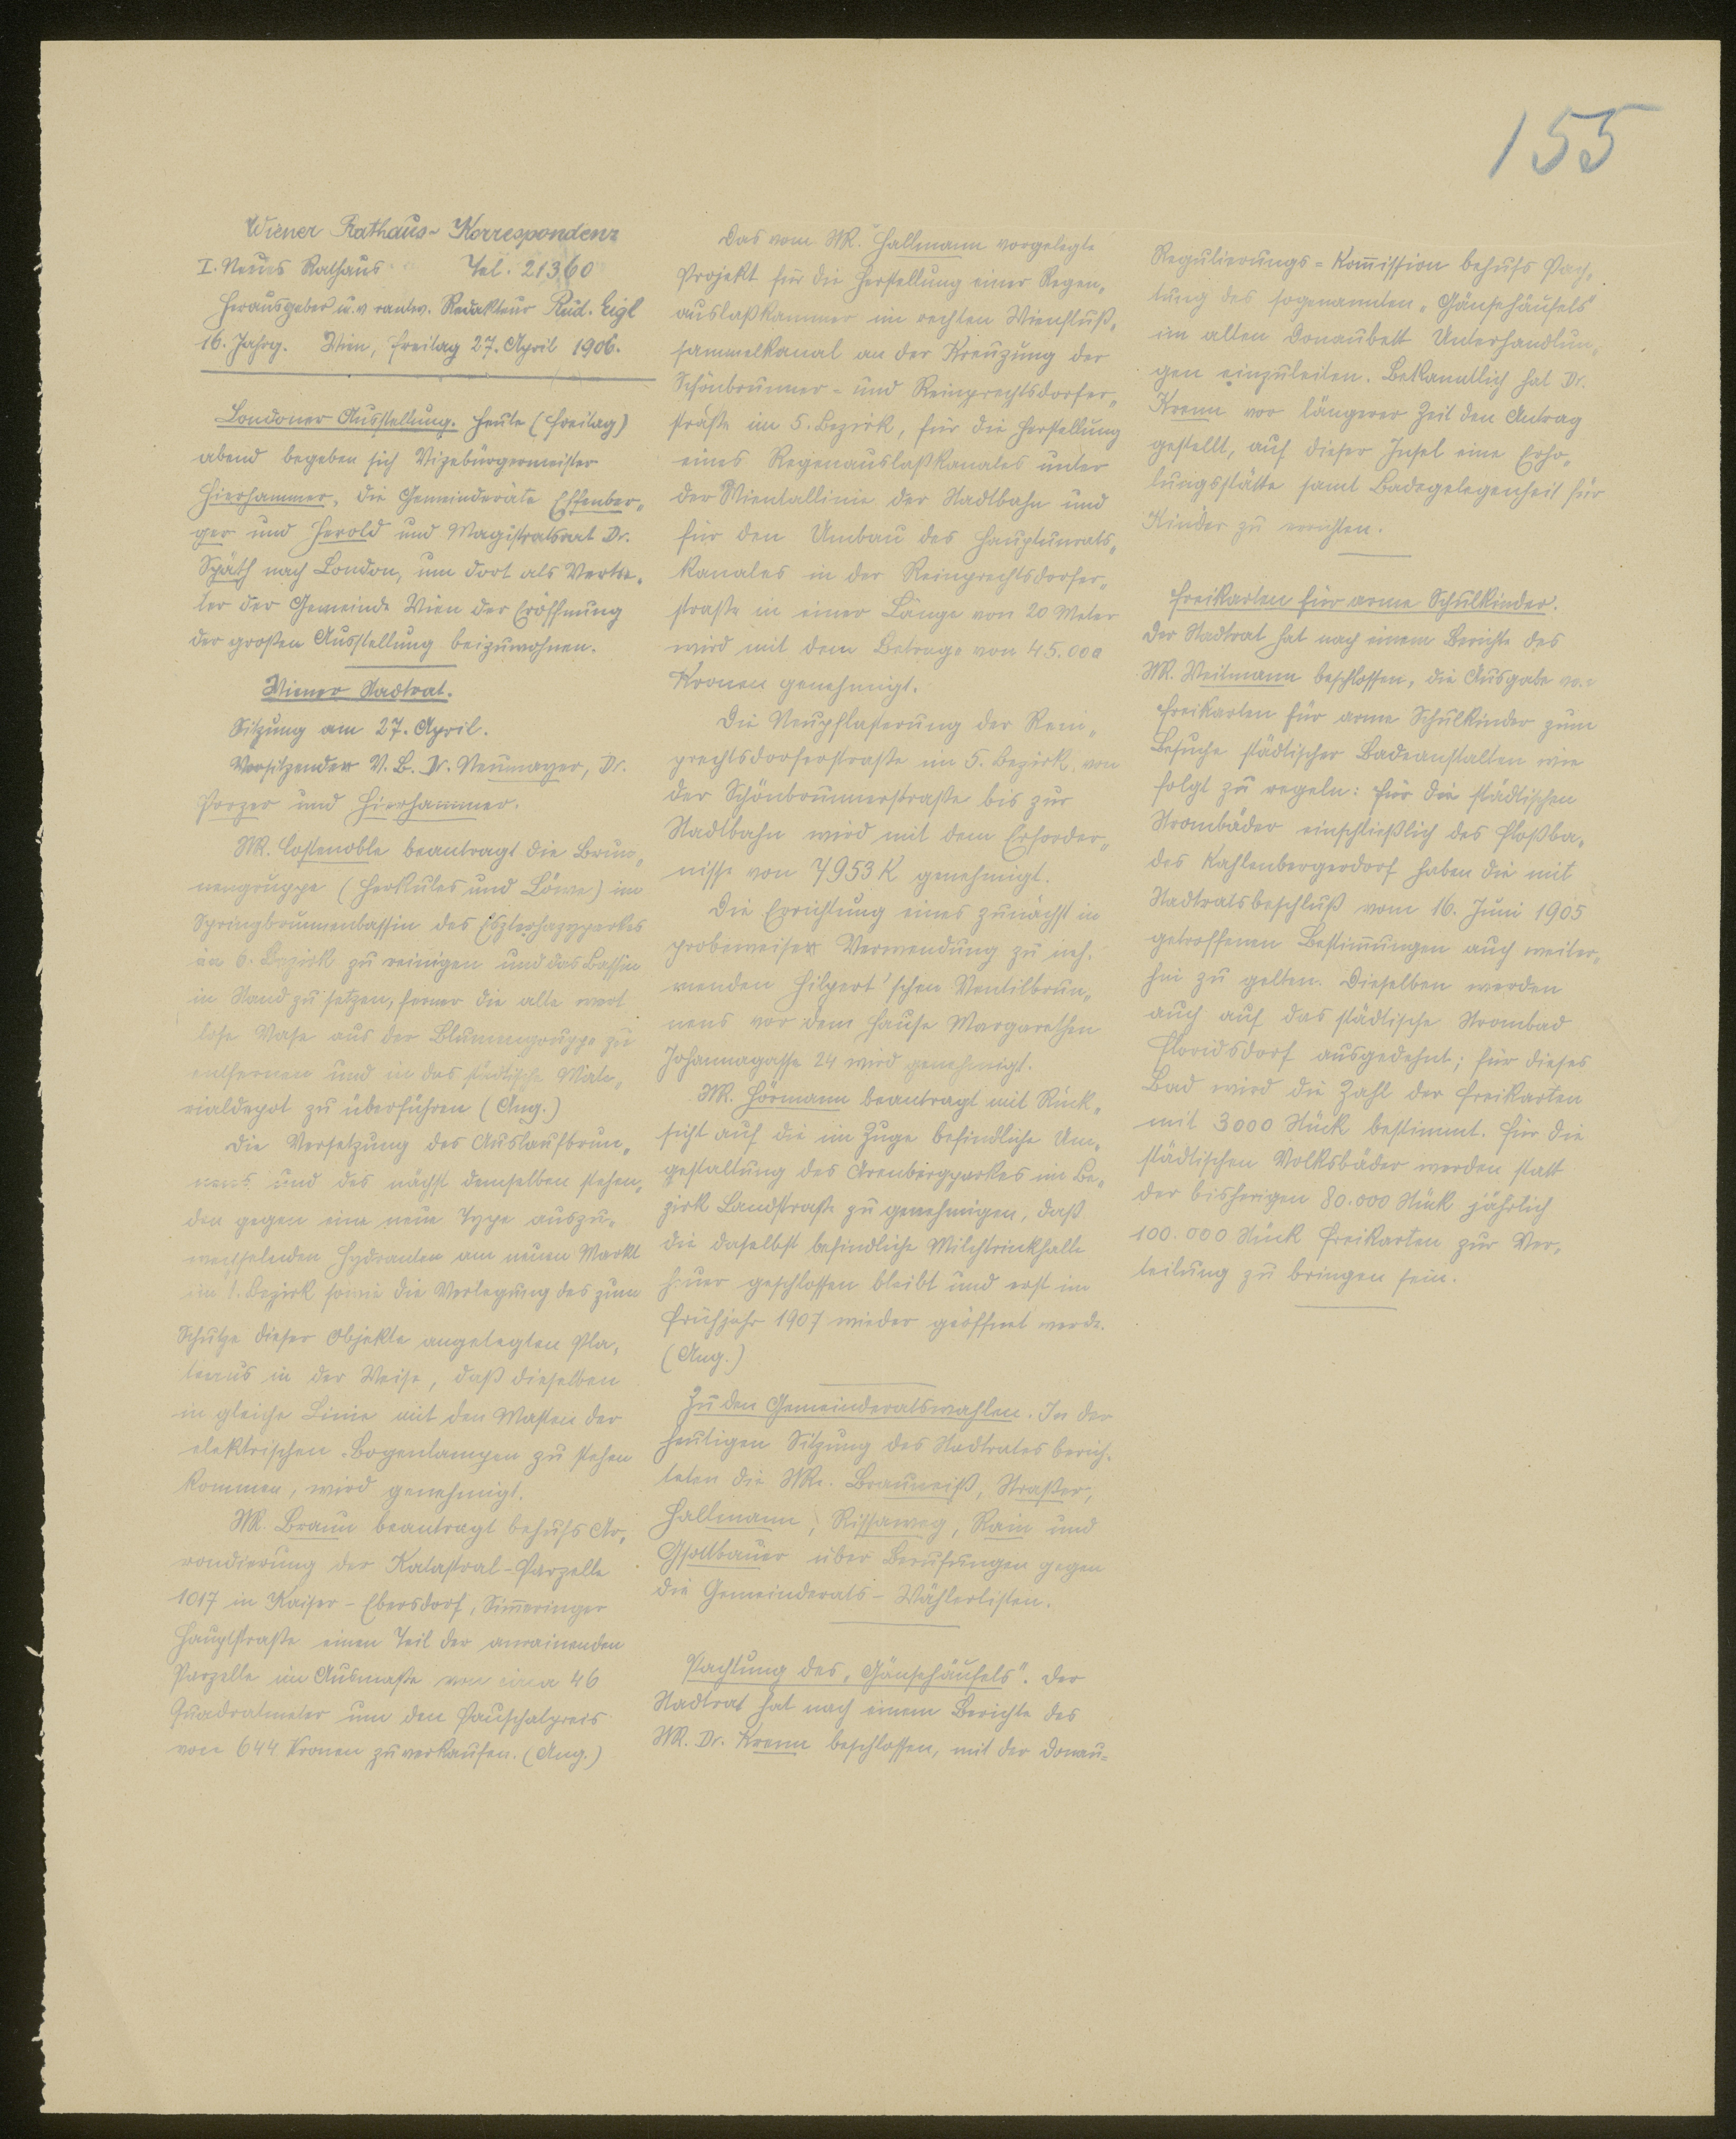 155
Wiener Rathaus-Korrespondenz
I. Neues Rathaus Tel. 21360
Herausgeber u. v rantw. Redakteur Rud. Eigl
16. Jahrg. Wien, Freitag 27. April 1906.
Londoner Ausstellung. Heute (Freitag)
abend begeben sich Vizebürgermeister
Hierhammer, die Gemeinderäte Effenber-
ger und Herold und Magistratsrat Dr.
Späth nach London, um dort als Vertre-
ter der Gemeinde Wien der Eröffnung
der großen Ausstellung beizuwohnen.
Wiener Stadtrat.
Sitzung am 27. April.
Vorsitzender V. B. Dr. Neumayer, Dr.
Porzer und Hierhammer.
StR. Costenoble beantragt die Brun-
nengruppe (Herkules und Löwe) im
Springbrunnenbassin des Eszterhazyparkes
im 6. Bezirk zu reinigen und das Bassin
in Stand zu setzen, ferner die alte wert
lose Vase aus der Blumengruppe zu
entfernen und in das städtische Mate-
rialdepot zu überführen (Ang.)
Die Versetzung des Auslaufbrun-
nens und des nächst demselben stehen-
den gegen eine neue Type auszu-
wechselnden Hydranten am neuen Markt
im 1. Bezirk sowie die Verlegung des zum
Schutze dieser Objekte angelegten Pla-
teaus in der Weise, daß dieselben
in gleiche Linie mit den Masten der
elektrischen Bogenlampen zu stehen
kommen, wird genehmigt.
StR. Braun beantragt behufs Ar-
rondierung der Katastral-Parzelle
1017 in Kaiser-Ebersdorf, Sim̅eringer
Hauptstraße einen Teil der anrainenden
Parzelle im Ausmaße von circa 46
Quadratmeter um den Pauschalpreis
von 644 Kronen zu verkaufen. (Ang.)
Das vom StR. Hallmann vorgelegte
Projekt für die Herstellung einer Regen-
auslaßkammer im rechten Wienfluß-
sammelkanal an der Kreuzung der
Schönbrunner- und Reinprechtsdorfer-
straße im 5. Bezirk, für die Herstellung
eines Regenauslaßkanales unter
der Wientallinie der Stadtbahn und
für den Umbau des Hauptunrats-
kanales in der Reinprechtsdorfer-
straße in einer Länge von 20 Meter
wird mit dem Betrage von 45.000
Kronen genehmigt.
Die Neupflasterung der Rein-
prechtsdorferstraße im 5. Bezirk von
der Schönbrunnerstraße bis zur
Stadtbahn wird mit dem Erforder-
nisse von 7953 K genehmigt.
Die Errichtung eines zunächst in
probeweiser Verwendung zu neh-
menden Hilpert'schen Ventilbrun-
nens vor dem Hause Margarethen
Johannagasse 24 wird genehmigt.
StR. Hörmann beantragt mit Rück-
sicht auf die im Zuge befindliche Um-
gestaltung des Arenbergparkes im Be-
zirk Landstraße zu genehmigen, daß
die daselbst befindliche Milchtrinkhalle
heuer geschlossen bleibt und erst im
Frühjahr 1907 wieder geöffnet werde.
(Ang.)
Zu den Gemeinderatswahlen. In der
heutigen Sitzung des Stadtrates berich-
teten die StRe. Brauneiß, Straßer,
Hallmann, Rissaweg, Rain und
Gsottbauer über Berufungen gegen
die Gemeinderats-Wählerlisten.
Pachtung des „Gänsehäufels". Der
Stadtrat hat nach einem Berichte des
StR. Dr. Krenn beschlossen, mit der Donau-
Regulierungs-Kom̅ission behufs Pach-
tung des sogenannten „Gänsehäufels"
im alten Donaubett Unterhandlun-
gen einzuleiten. Bekanntlich hat Dr.
Krenn vor längerer Zeit den Antrag
gestellt, auf dieser Insel eine Erho-
lungsstätte samt Badegelegenheit für
Kinder zu errichten.
Freikarten für arme Schulkinder.
Der Stadtrat hat nach einem Berichte des
StR. Weitmann beschlossen, die Ausgabe von
Freikarten für arme Schulkinder zum
Besuche städtischer Badeanstalten wie
folgt zu regeln: Für die städtischen
Strombäder einschließlich des Floßba-
des Kahlenbergerdorf haben die mit
Stadtratsbeschluß vom 16. Juni 1905
getroffenen Bestim̅ungen auch weiter-
hin zu gelten. Dieselben werden
auch auf das städtische Strombad
Floridsdorf ausgedehnt; für dieses
Bad wird die Zahl der Freikarten
mit 3000 Stück bestimmt. Für die
städtischen Volksbäder werden statt
der bisherigen 80.000 Stück jährlich
100.000 Stück Freikarten zur Ver-
teilung zu bringen sein.